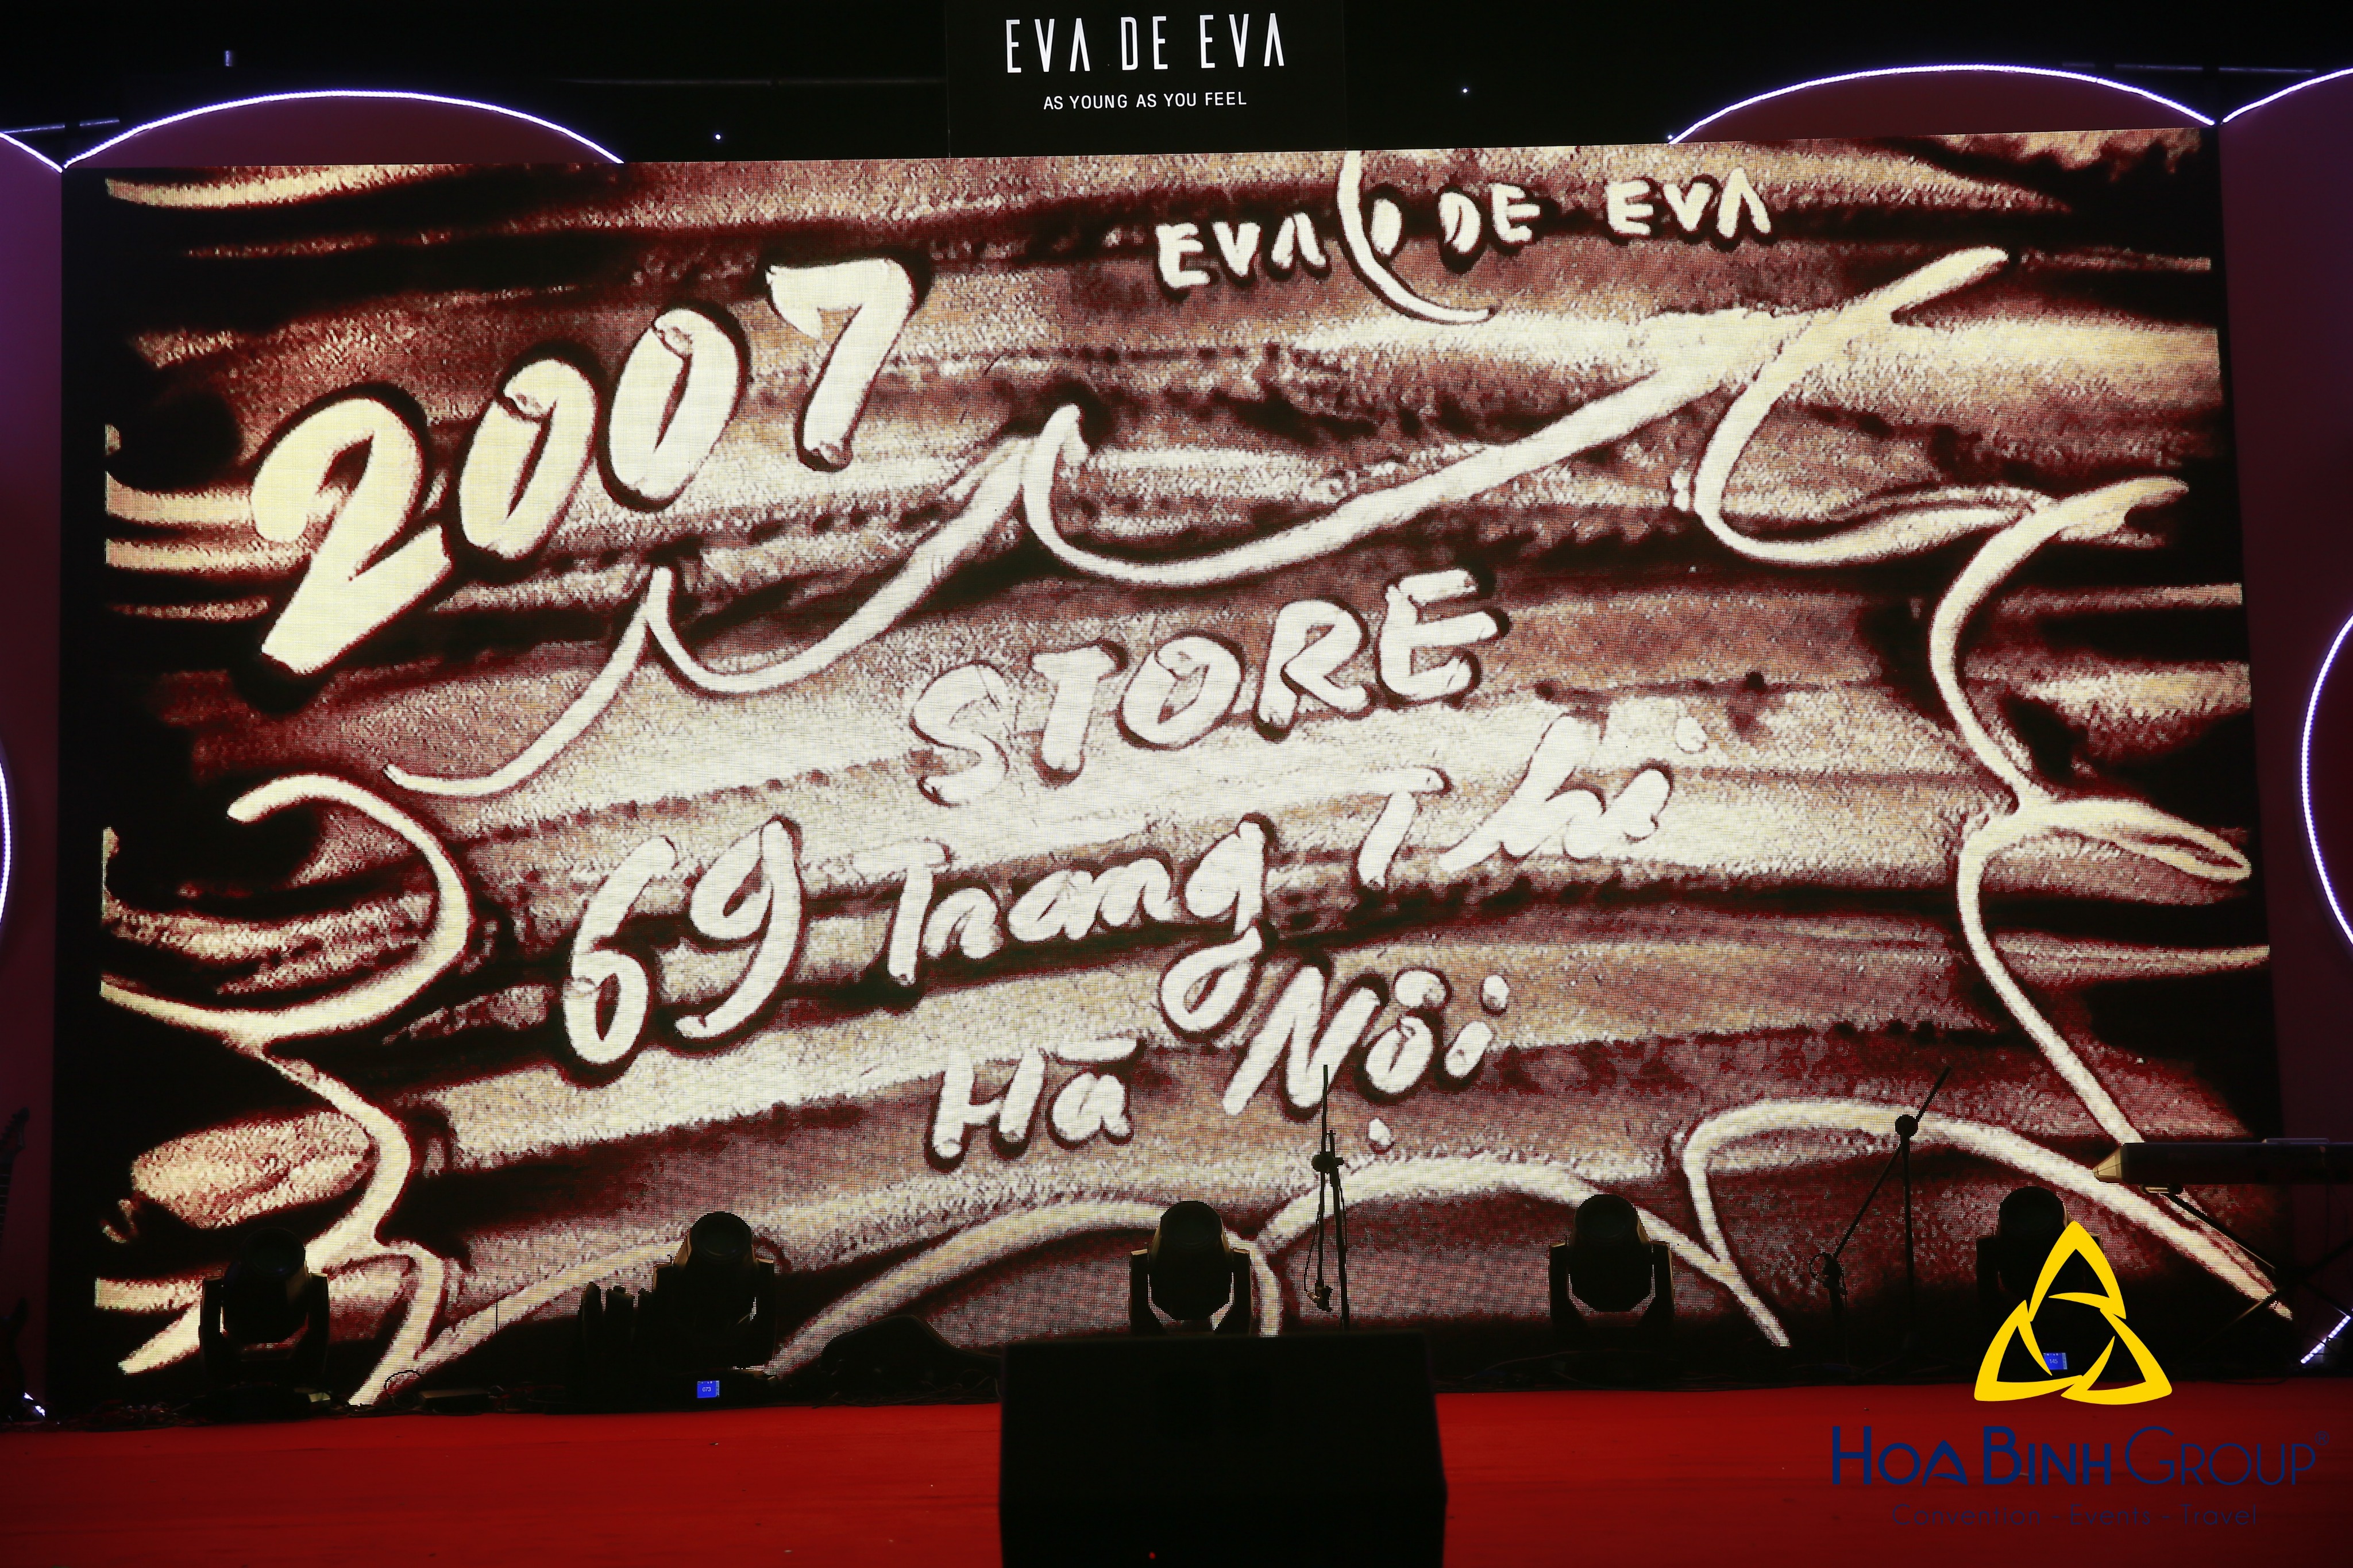 EVA DE EVA
AS YOUNG AS YOU FEEL
EVA DE EVA
2007
STORE
69 Trang Thi
Hà Nội
073
145
HOA BINH GROUP®
Convention - Events - Travel